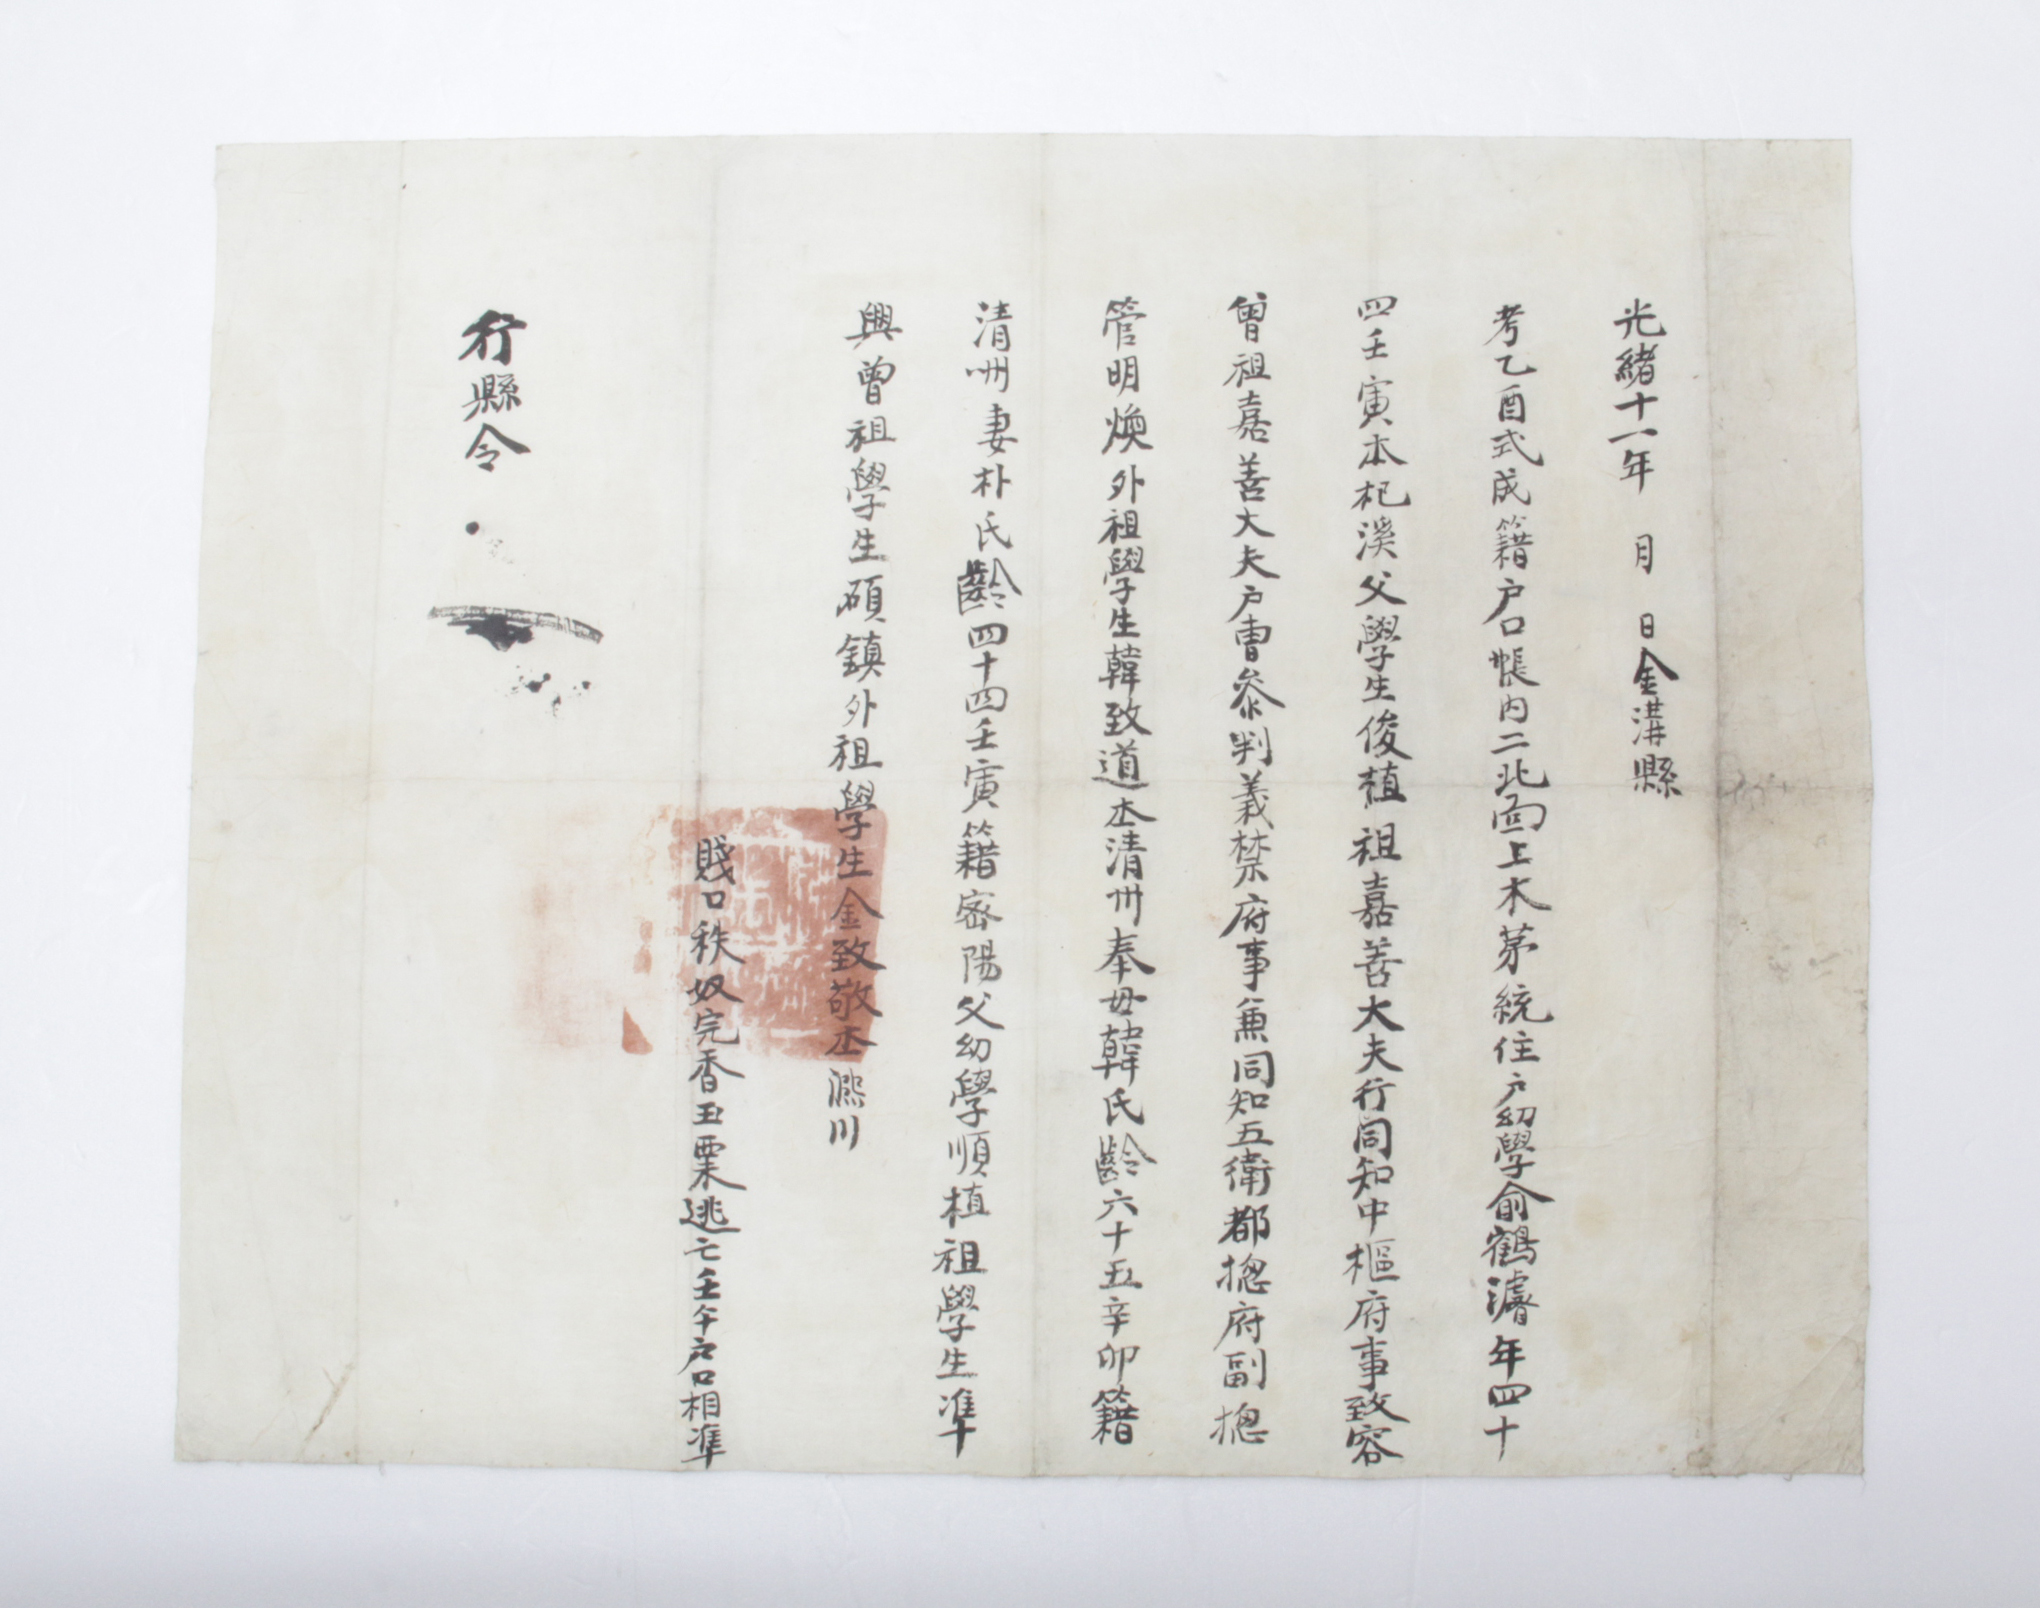 光緖十一年 月 日金溝縣
考乙酉式成籍户口帳內二北面上木茅統住户幼學俞鶴濬年四十
四壬寅本杞溪父學生俊植祖嘉善大夫行同知中樞府事致容
曾祖嘉善大夫户曹參判義禁府事兼同知五衛都摠府副摠
管明煥外祖學生韓致道本清州奉母韓氏齡六十五辛卯籍
清州妻朴氏齡四十四壬寅籍密陽父幼學順植祖學生準
興曾祖學生碩鎮外祖學生金致敬本 川
賤口秩奴完香玉栗逃亡壬午户口相準
行縣令